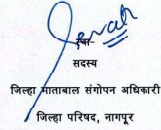 सदस्य
जिल्हा माताबाल संगोपन अधिकारी
जिल्हा परिषद, नागपूर